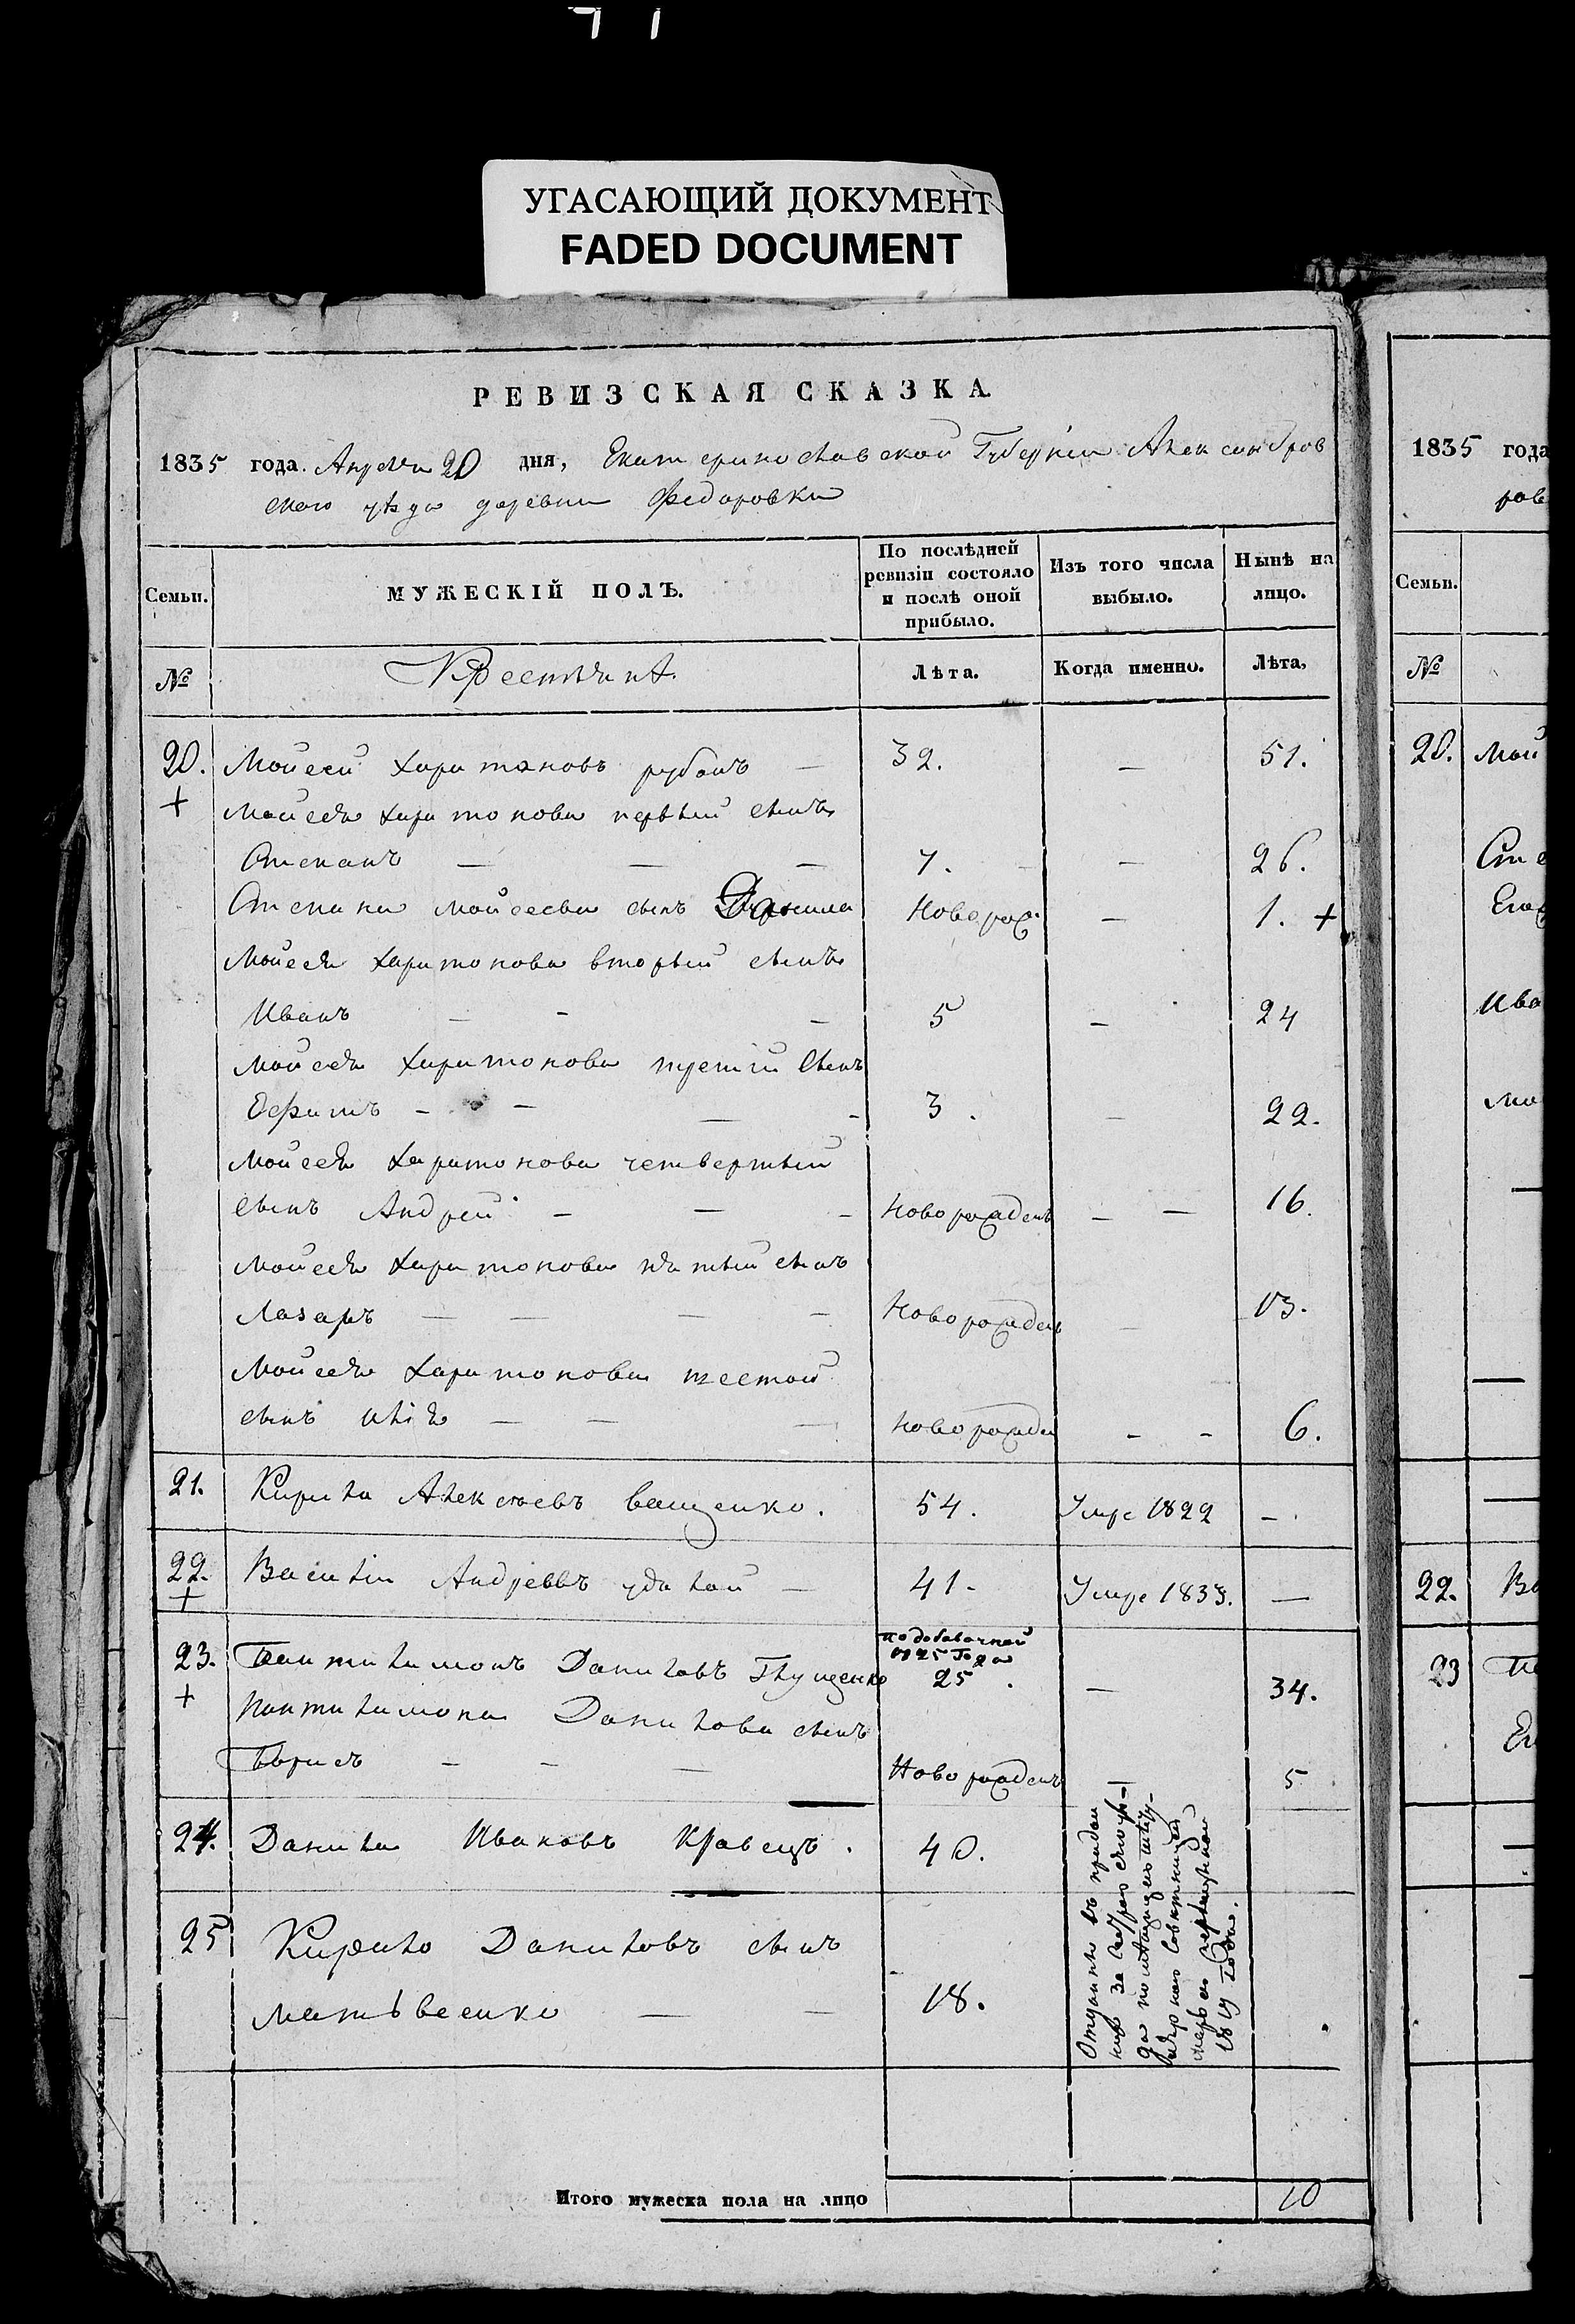 УГАСАЮЩИЙ ДОКУМЕНТ
FADED DOCUMENT
РЕВИЗСКАЯ СКАЗКА
1835 года. Апреля 20 дня, Екатеринославской Губернии Александров
ского уѣзда деревни Федоровки
Семьи. МУЖЕСКІЙ ПОЛЪ. По послѣдней ревизіи состояло и послѣ оной прибыло. Изъ того числа выбыло. Нынѣ на лицо.
№ Крестьяне. Лѣта. Когда именно. Лѣта,
20. Мойсей Харитоновъ рубанъ — 32. — 51.
+ Мойсея Харитонова первый сынъ
Степанъ — — — 7. — 26.
Степана Мойсеева сынъ Новорож. — 1. +
Мойсея Харитонова вторый сынъ
Иванъ — — — 5 — 24
Мойсея Харитонова третій сынъ
— — — — 3. — 22.
Мойсея Харитонова четвертый
сынъ Андрей — — — Новорожденъ — — 16.
Мойсея Харитонова пятый сынъ
Лазаръ — — — — Новорожденъ — 13.
Мойсея Харитонова шестой
сынъ Илія — — — Новорожден — — 6.
21. Кирила Алексѣевъ ващенко. 54. Умре 1822 —.
22. Василій Андреевъ удалой — 41. Умре 1833. —
+
по добавочной
1825 Года
23. Пантилимонъ Даниловъ Глущенко 25. — 34.
+ Пантилимона Данилова сынъ
Борисъ — — — Новорожденъ 5
24. Данила Ивановъ Кравецъ. 40.
25 Кирило Даниловъ сынъ
матвѣенко — — 18.
Отданы въ придан
1819 Года.
Итого мужеска пола на лицо 10
1835 года
ров
Семьи.
№
20. Мой
Сте
Ива
22. Ва
23